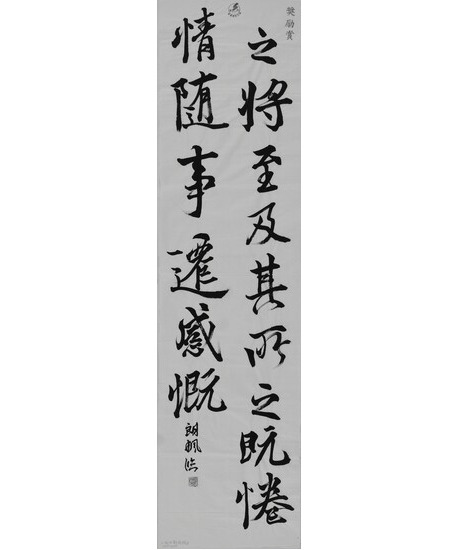 奨励賞
之将至及其所之既惓
情随事遷感慨
臨